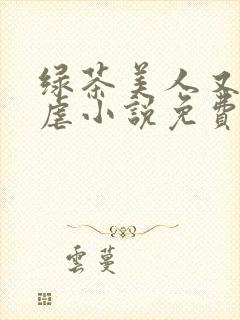 绿茶美人又
虐小說免費
雲蔓